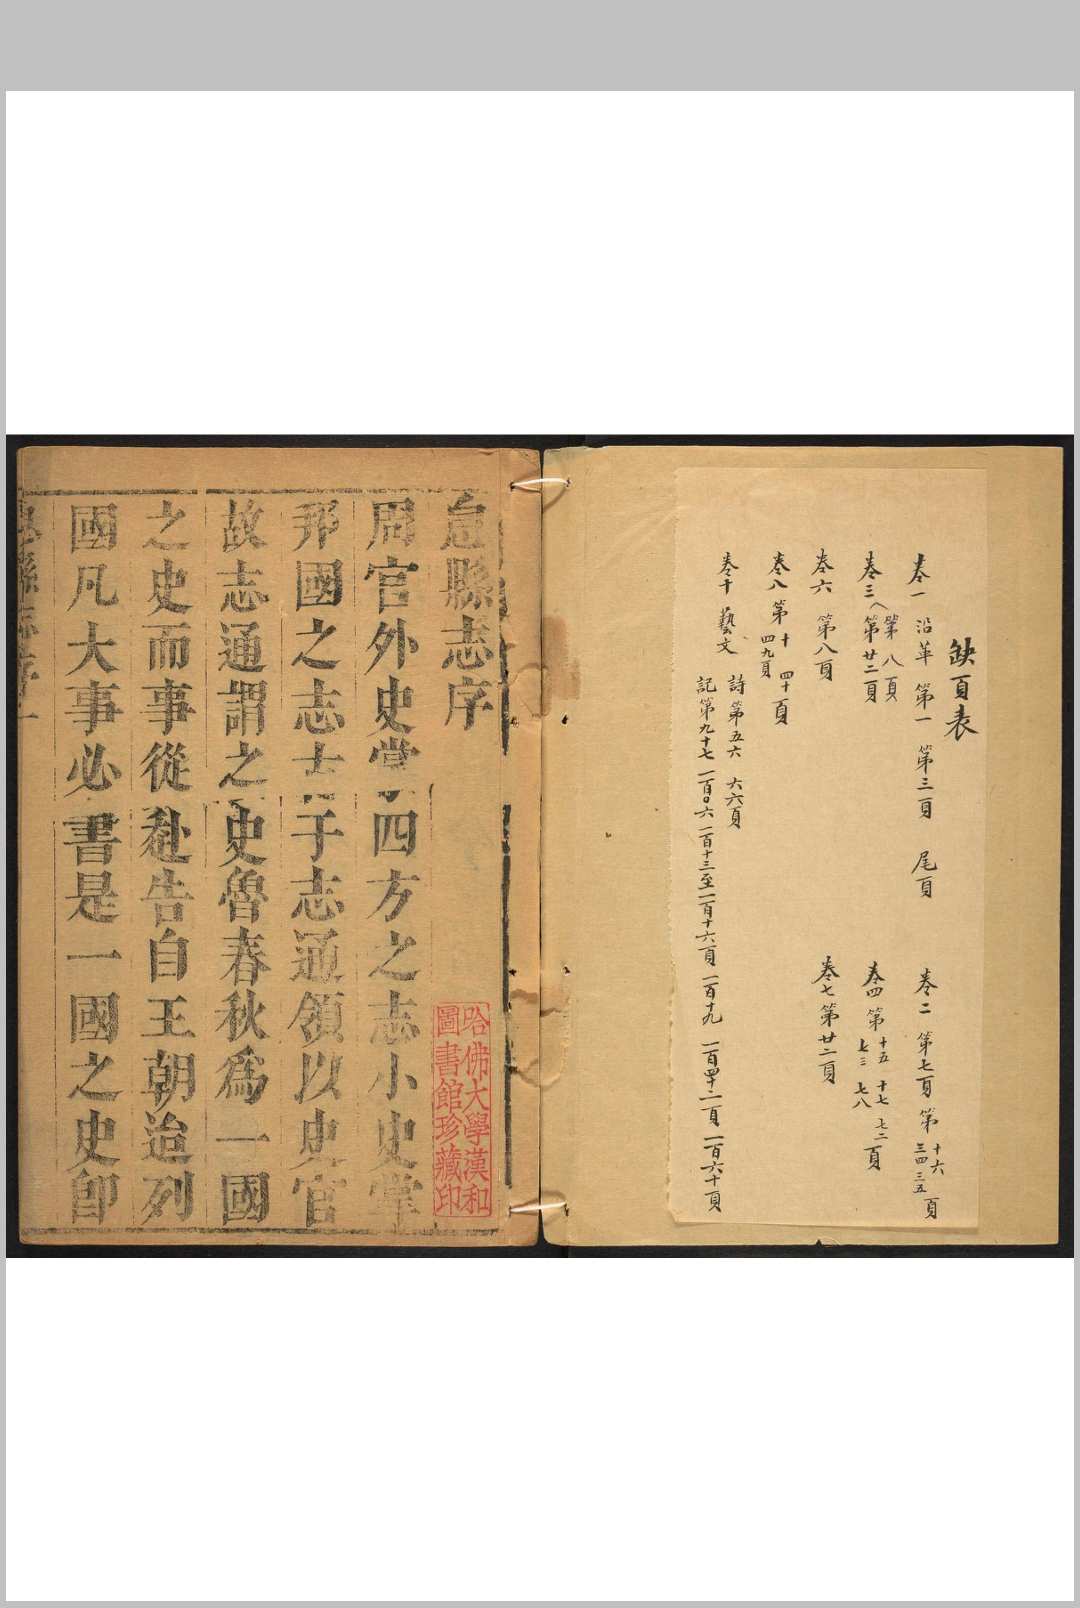 缺頁表
卷一 沿革 第一 第三頁 尾頁
卷二 第七頁 第十六 三四 三五 頁
卷三 第八頁
第廿二頁
卷四 第十五 十七 七二 頁
七三 七八
卷六 第八頁
卷七 第廿二頁
卷八 第十 四十頁
四九頁
卷十 藝文 詩 第五六 六六頁
記 第九十七 一百〇六 一百十三至一百十六頁 一百十九 一百四十二頁 一百六十頁
息縣志序
周官外史掌四方之志小史掌
邦國之志 子志通領以史官
故志通謂之史魯春秋為一國
之史而事從赴告自王朝迨列
國凡大事必書是一國之史卽
息縣志序 一
哈佛大學漢和
圖書館珍藏印